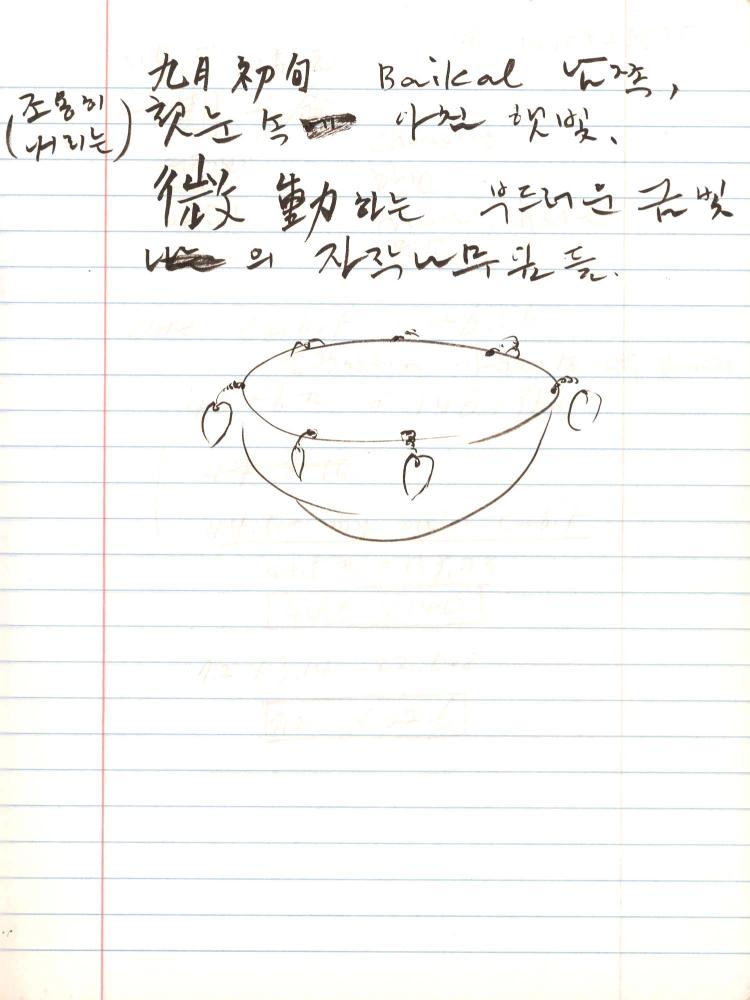 九月 初旬 Baikal 남쪽,
(조용히
내리는)
첫눈 속 아침 햇빛.
微動하는 부드러운 금빛
의 자작나무 잎들.